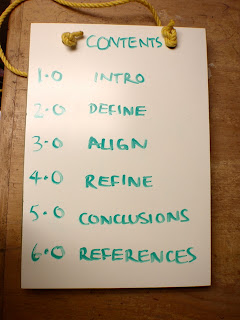 CONTENTS
1.0 INTRO
2.0 DEFINE
3.0 ALIGN
4.0 REFINE
5.0 CONCLUSIONS
6.0 REFERENCES